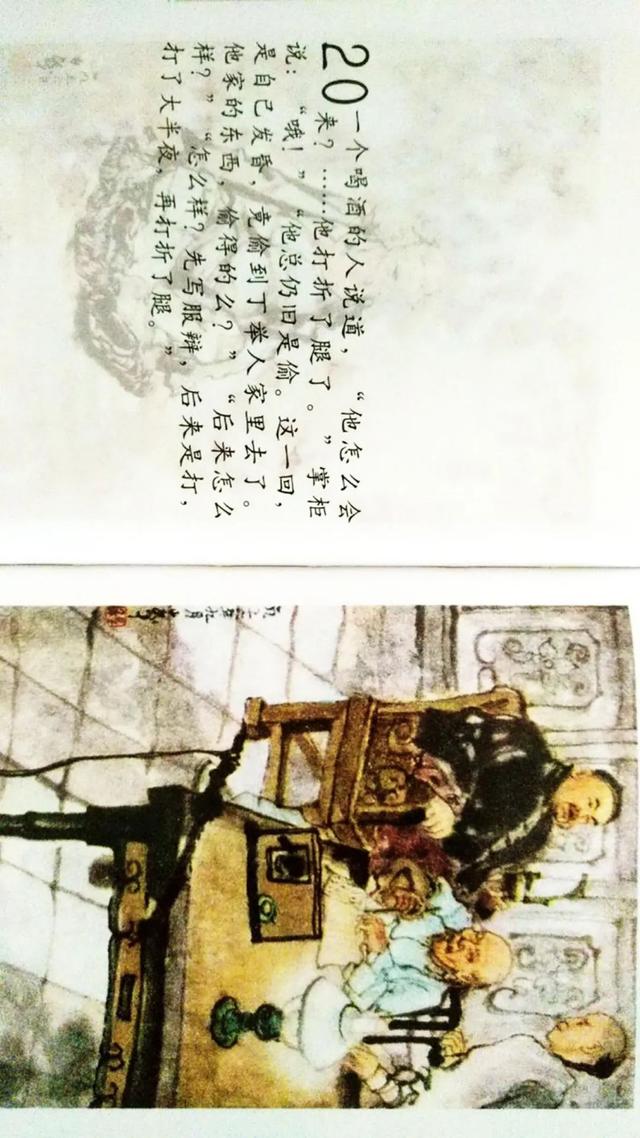 20 一个喝酒的人说道，“他怎么会
来？……他打折了腿了。”掌柜
说：“哦！”“他总仍旧是偷。这一回，
是自己发昏，竟偷到丁举人家里去了。
他家的东西，偷得的么？”“后来怎么
样？”“怎么样？先写服辩，后来是打，
打了大半夜，再打折了腿。”